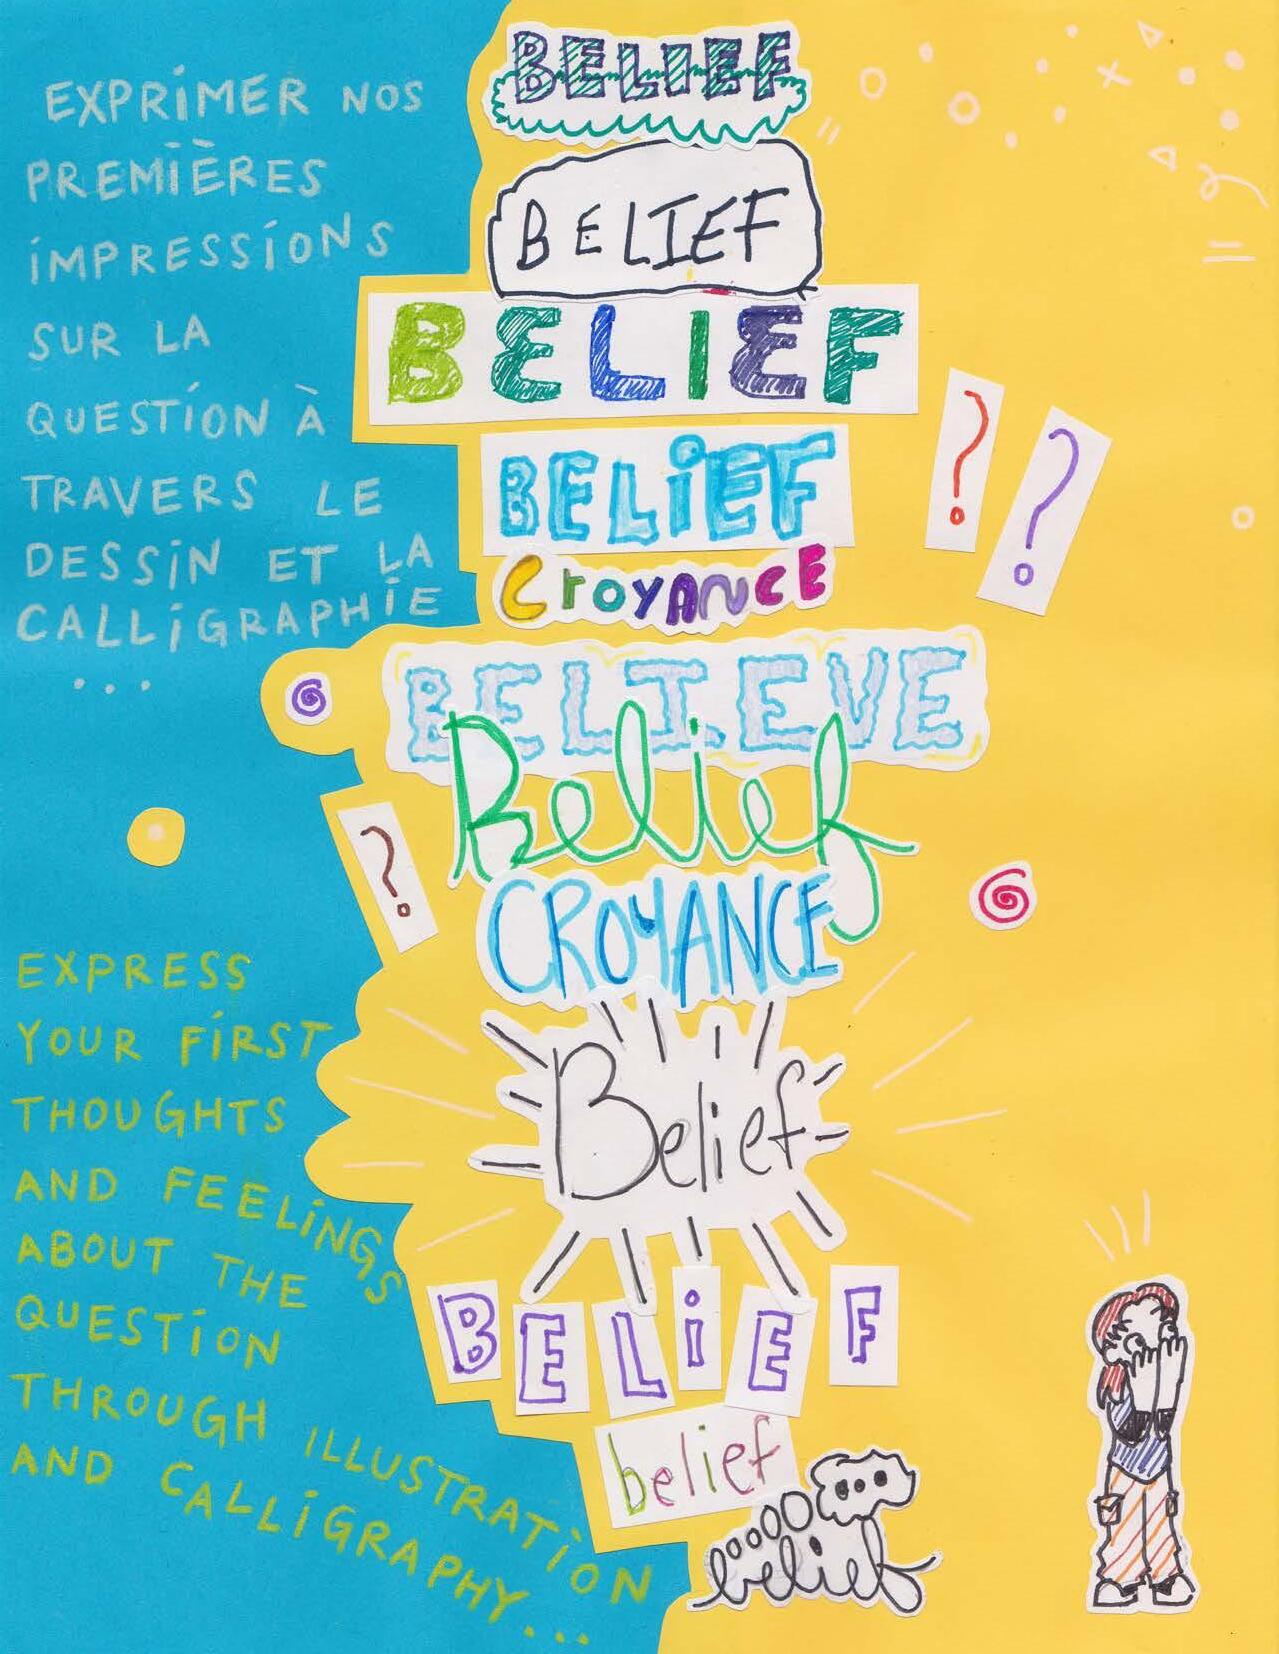 EXPRIMER NOS
PREMIÈRES
IMPRESSIONS
SUR LA
QUESTION À
TRAVERS LE
DESSIN ET LA
CALLIGRAPHIE
...
EXPRESS
YOUR FIRST
THOUGHTS
AND FEELINGS
ABOUT THE
QUESTION
THROUGH ILLUSTRATION
AND CALLIGRAPHY...
BELIEF
BELIEF
BELIEF
BELIEF
? ?
CroyANCE
BELIEVE
Belief
?
CROYANCE
Belief
BELIEF
belief
...
belief